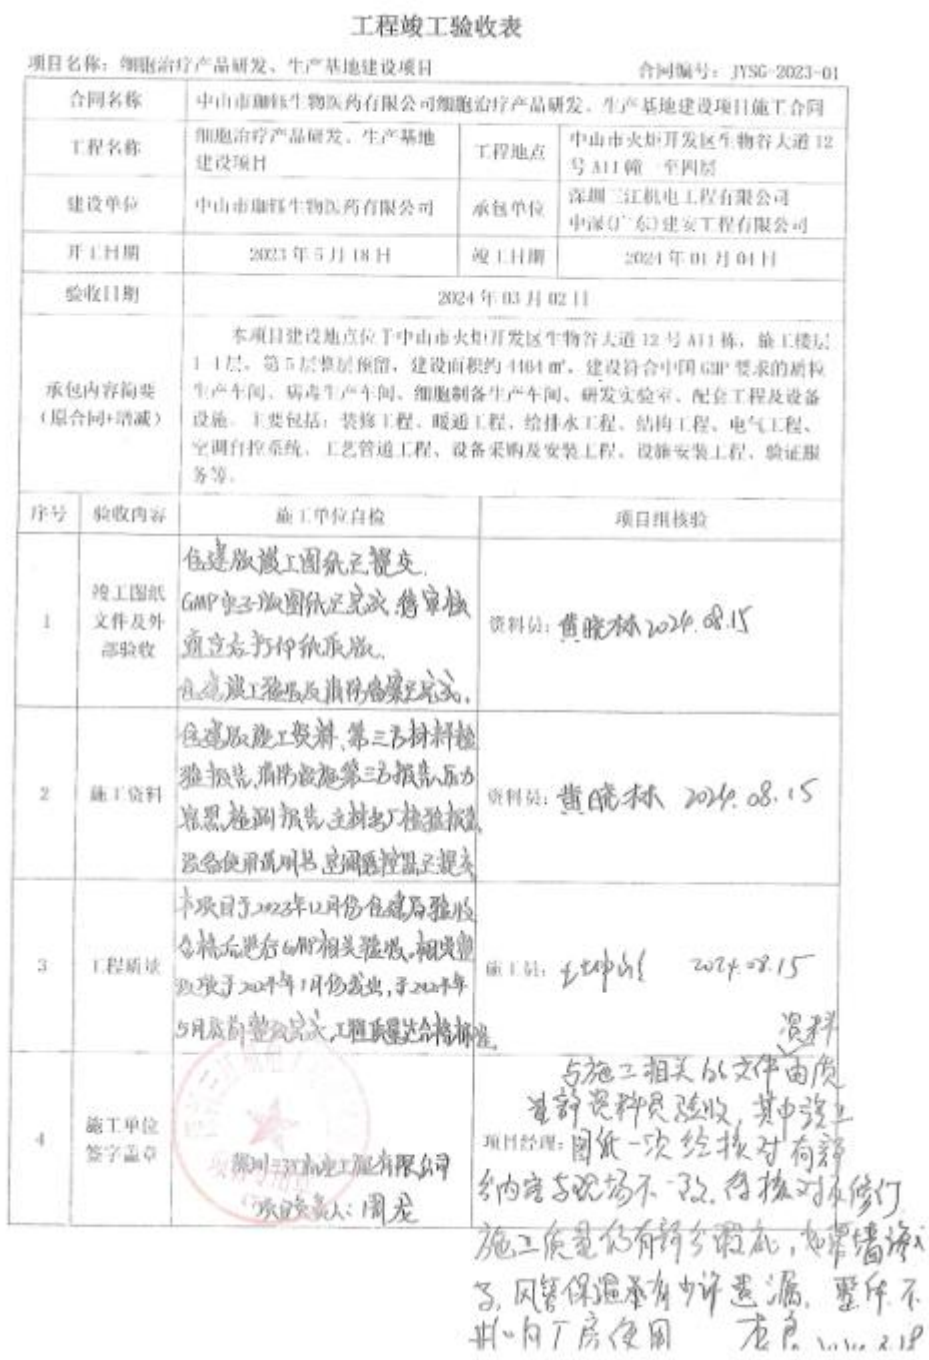 工程竣工验收表
项目名称：细胞治疗产品研发、生产基地建设项目 合同编号：JYSG-2023-01
合同名称 中山市珈钰生物医药有限公司细胞治疗产品研发、生产基地建设项目施工合同
工程名称 细胞治疗产品研发、生产基地建设项目 工程地点 中山市火炬开发区生物谷大道 12
号 A11 幢 至四层
建设单位 中山市珈钰生物医药有限公司 承包单位 深圳三江机电工程有限公司
中深(广东)建安工程有限公司
开工日期 2023 年 5 月 18 日 竣工日期 2024 年 01 月 04 日
验收日期 2024 年 03 月 02 日
承包内容简要
（原合同+增减）
本项目建设地点位于中山市火炬开发区生物谷大道 12 号 A11 栋，施工楼层
1-4层，第 5 层整层预留，建设面积约 4464 ㎡，建设符合中国 GMP 要求的质粒
生产车间、病毒生产车间、细胞制备生产车间、研发实验室、配套工程及设备
设施。主要包括：装修工程、暖通工程、给排水工程、结构工程、电气工程、
空调自控系统、工艺管道工程、设备采购及安装工程、设施安装工程、验证服
务等。
序号 验收内容 施工单位自检 项目组核验
1 竣工图纸
文件及外
部验收
住建版竣工图纸已提交.
GMP电子版图纸已完成,待审核
确定后打印纸质版.
住建竣工验收及消防备案已完成.
资料员：黄晓林 2024.08.15
2 施工资料
住建版施工资料、第三方材料检
验报告,消防设施第三方报告,压力
容器,检测报告,主材出厂检验报告
设备使用说明书,空调 已提交
资料员：黄晓林 2024.08.15
3 工程质量
本项目于2023年12月份住建局验收
合格后进行GMP相关验收,相关整
改项于2024年1月份发出,于2024年
5月底前整改完成,工程质量达合格标准.
施工员： 2024.08.15
4 施工单位
签字盖章
深圳三江机电工程有限公司
项目负责人:周龙
资料
与施工相关的文件由质
量部资料员验收,其中竣工
项目经理：图纸一次经核对有部
分内容与现场不一致.待核对后修订
施工质量仍有部分瑕疵,如 墙
风管保温 有少许遗漏. 整体不
影响厂房使用